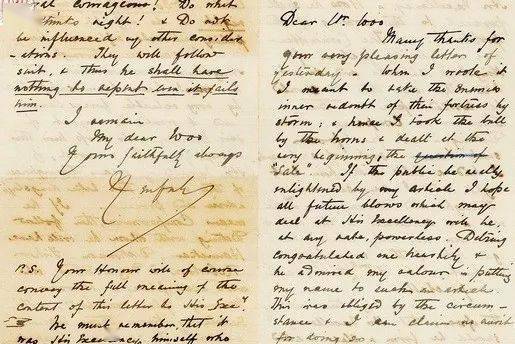 courageous! Do what
thinks right! & Do not
be influenced by other consider
-ations. They will follow
suit, & thus he shall have
nothing to repent even if it fails
him.
I remain
My dear Woo
Yours faithfully always
P.S. Your Honour will of course
convey the full meaning of the
content of this letter to His Exc.y
We must remember, that it
was His Exc   himself who
Dear Mr. Woo
Many thanks for
your very pleasing letter of
yesterday. When I wrote it
I meant to take the
inner redoubt of their fortress by
storm; & hence I took the bull
by the horns & dealt at the
very beginning, the question of
"Sale". If the public be really
enlightened by my article I hope
all future blows which may
deal at His Excellency will be,
at any rate, powerless. Detring
congratulated me heartily &
he admired my valour in putting
my name to such an article
This was obliged by the circum-
stance & I can claim no merit
for doing so